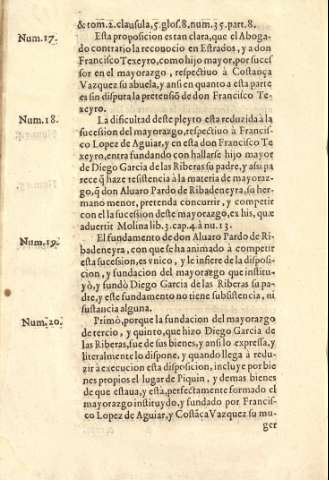 & tom.2.clausula,5.glos.8.num.35.part.8.
Num.17. Esta proposicion es tan clara, que el Aboga-
do contrario la reconocio en Estrados, y a don
Francisco Texeyro, como hijo mayor, por suces
sor en el mayorazgo, respectiuò à Costança
Vazquez su abuela, y ansi en quanto a esta parte
es sin disputa la pretensiõ de don Francisco Te-
xeyro.
Num.18. La dificultad deste pleyto esta reduzida à la
sucession del mayorazgo, respectiuo à Francis-
co Lopez de Aguiar, y en esta don Francisco Te
xeyro, entra fundando con hallarse hijo mayor
de Diego Garcia de las Riberas su padre, y asi pa
rece q̃ haze resistencia à la materia de mayoraz-
go, q̃ don Aluaro Pardo de Ribadeneyra, su her-
mano menor, pretenda concurrir, y competir
con el la sucession deste mayorazgo, ex his, quæ
aduertir Molina lib.3.cap.4.à nu.13.
Num.19. El fundamento de don Aluaro Pardo de Ri-
badeneyra, con que se ha animado à competir
esta sucesion, es vnico, y le infiere de la disposi-
cion, y fundacion del mayorazgo que institu-
yò, y fundò Diego Garcia de las Riberas su pa-
dre, y este fundamento no tiene subsistencia, ni
sustancia alguna.
Num.20. Primò, porque la fundacion del mayorazgo
de tercio, y quinto, que hizo Diego Garcia de
las Riberas, fue de sus bienes, y ansi lo expressa, y
literalmente lo dispone, y quando llega à redu-
zir a execucion esta disposicion, incluye por bie
nes propios el lugar de Piquin, y demas bienes
de que estaua, y està, perfectamente formado el
mayorazgo instituydo, y fundado por Francis-
co Lopez de Aguiar, y Costãca Vazquez su mu-
ger